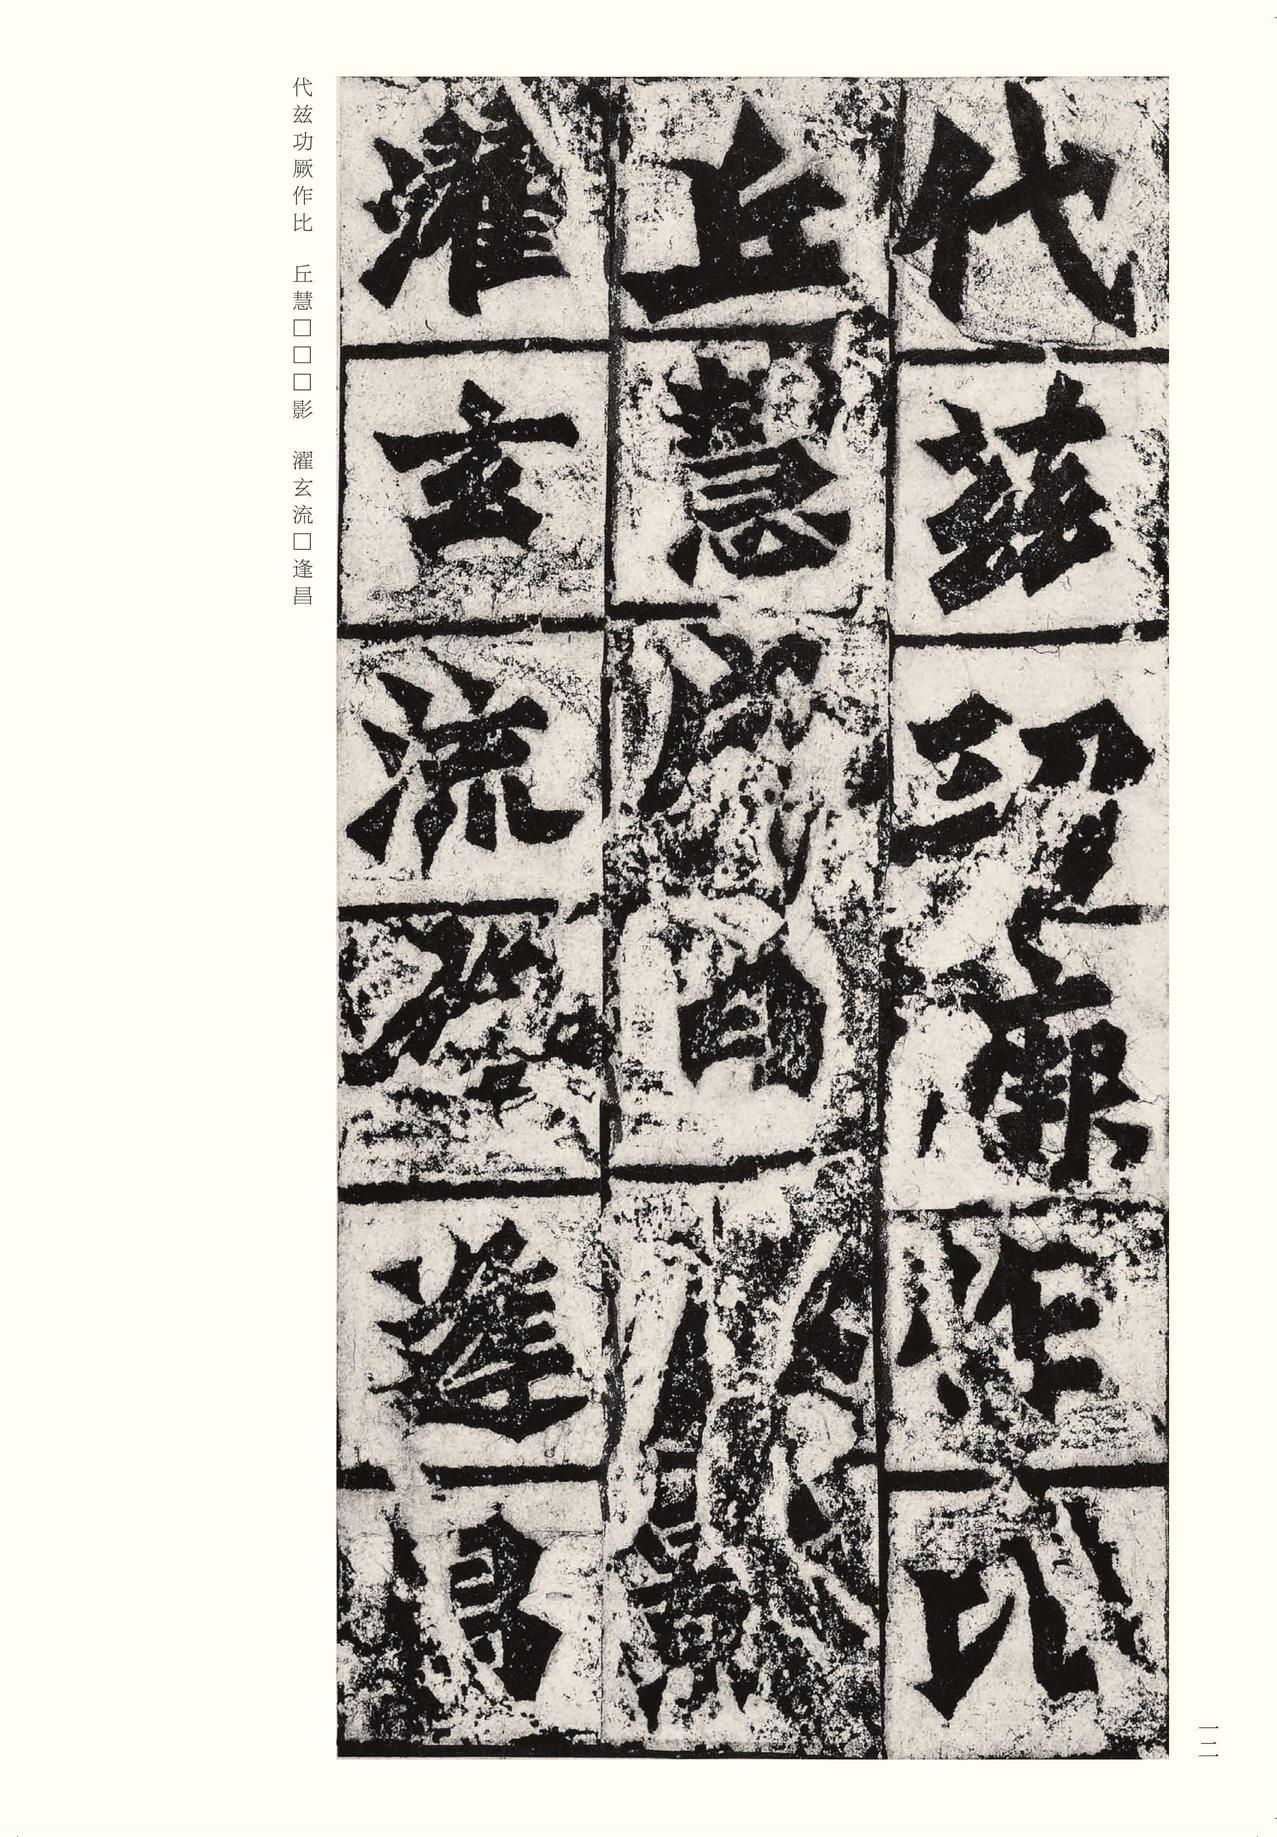 代兹功厥作比
丘慧□□□影
濯玄流□逢昌
代兹功厥作比　丘慧□□□影　濯玄流□逢昌
一二